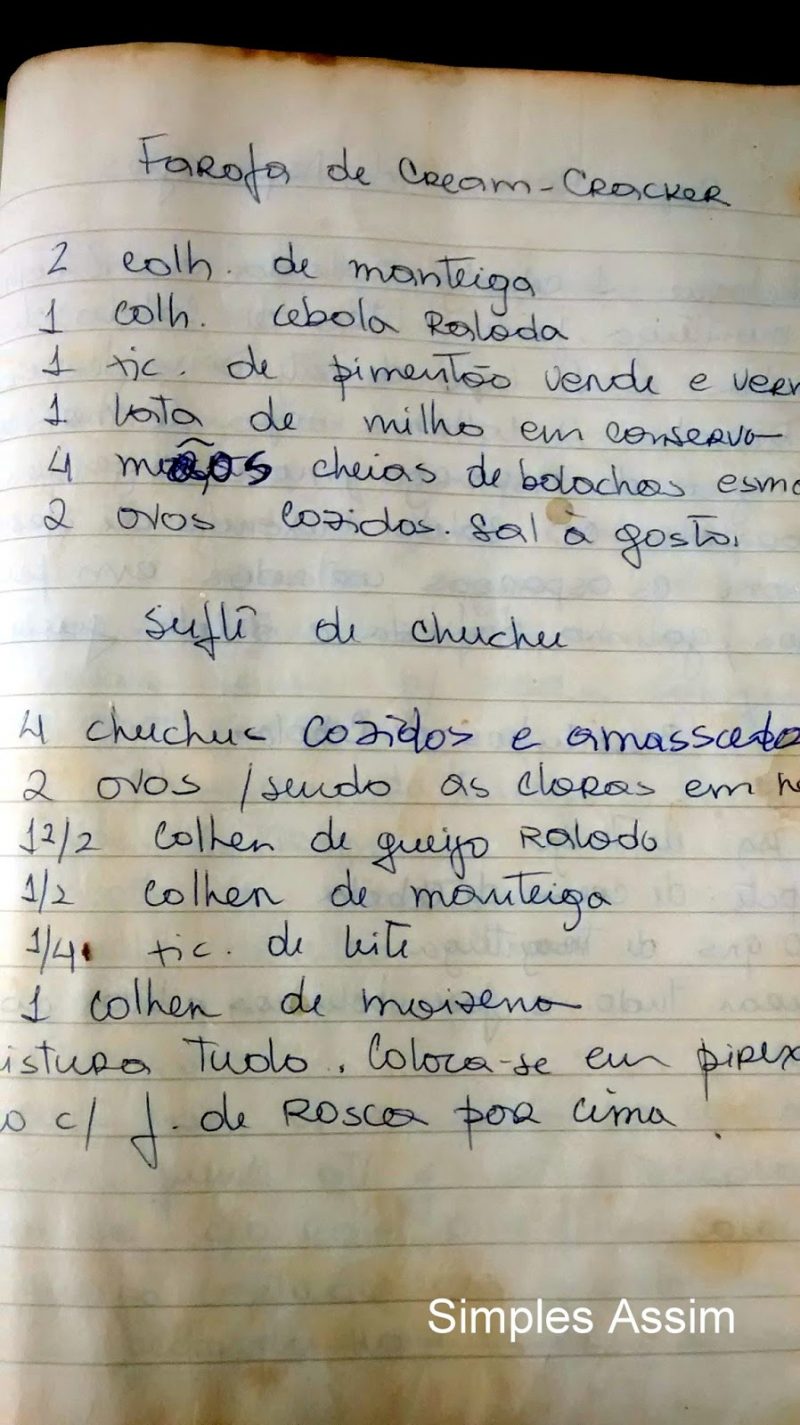 Farofa de Cream-Cracker
2 colh. de manteiga
1 colh. cebola Ralada
1 xic. de pimentão verde e verm
1 lata de milho em conserva
4 mãos cheias de bolachas esma
2 ovos cozidos. Sal à gosto.
Suflê de chuchu
4 chuchus cozidos e amassado
2 ovos / sendo as claras em n
1 2/2 colher de queijo Ralado
1/2 colher de manteiga
1/4 xic. de leite
1 colher de maizena
istura Tudo. Coloca-se em pirex
o c/ f. de Rosca por cima.
Simples Assim